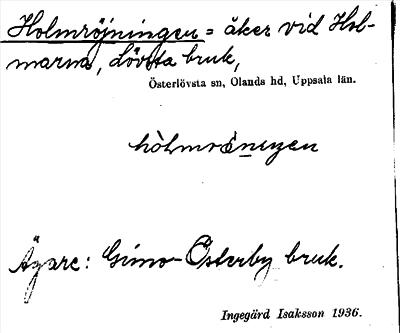 Holmröjningen = åker vid Hol-
marna, Lövsta bruk,
Österlövsta sn, Olands hd, Uppsala län.
hòlmrö̀ningen
Ägare: Gimo-Österby bruk.
Ingegärd Isaksson 1936.